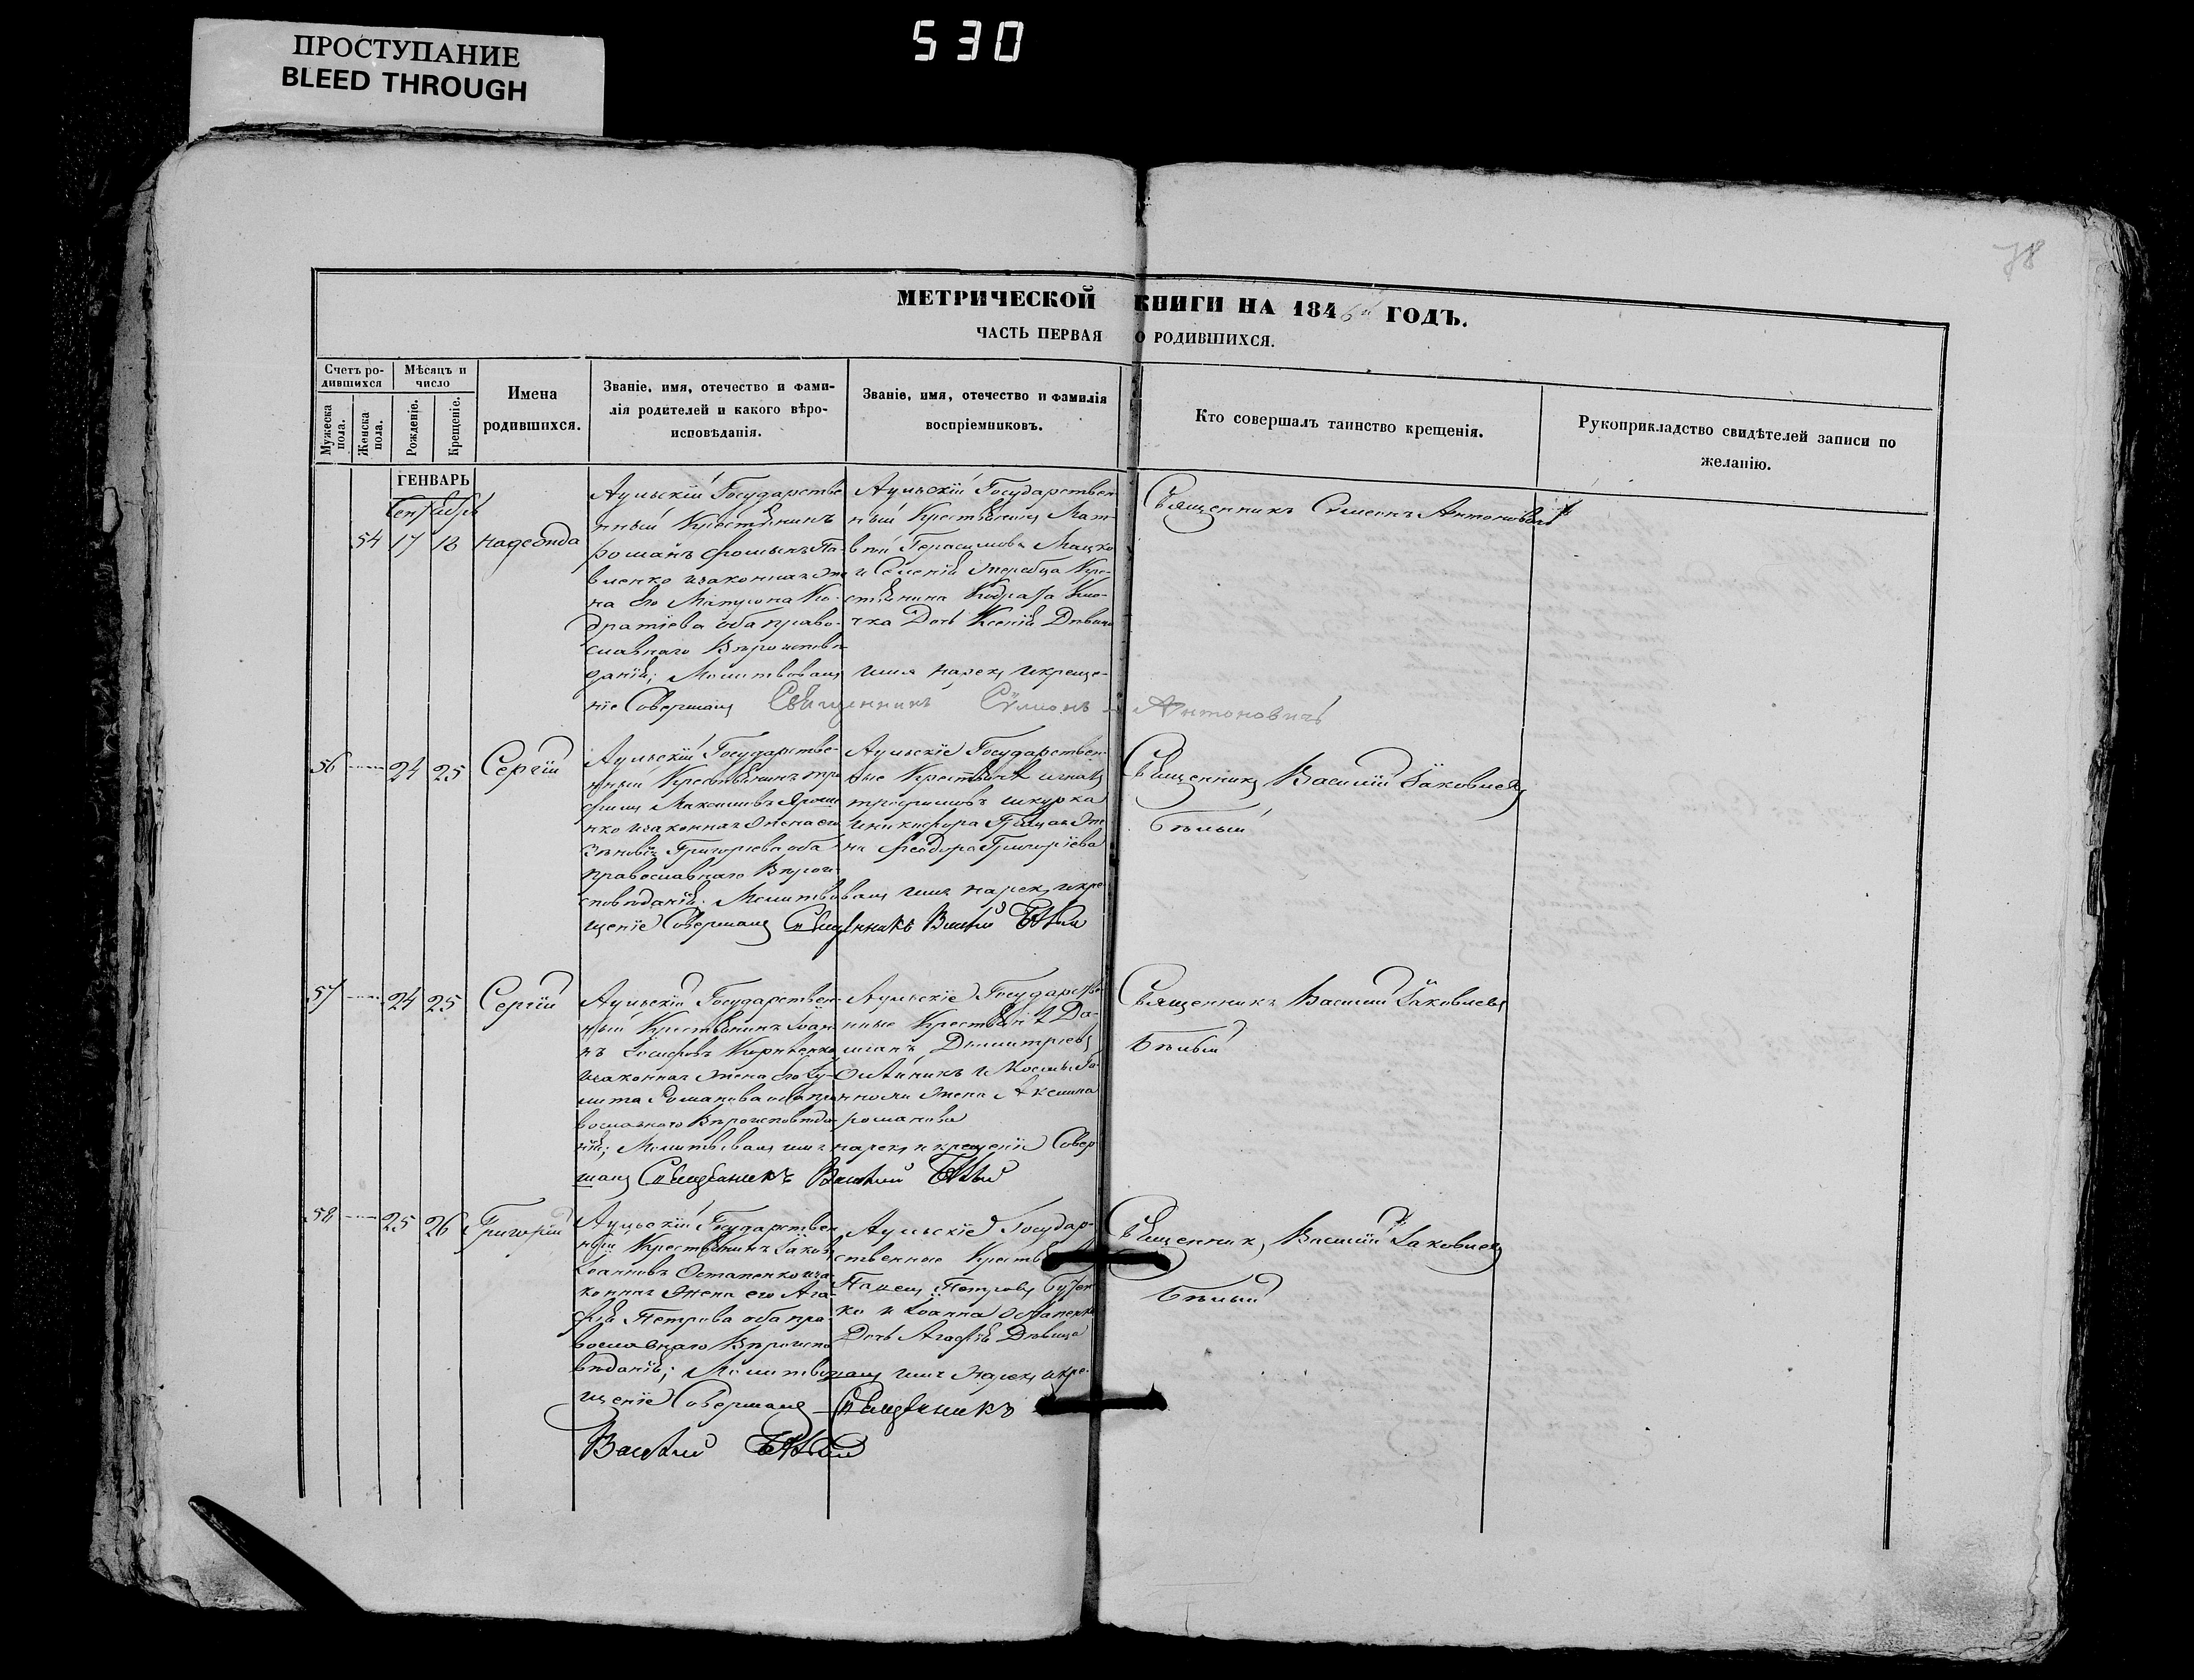 ПРОСТУПАНИЕ
BLEED THROUGH
530
78
МЕТРИЧЕСКОЙ КНИГИ НА 1846й ГОДЪ.
ЧАСТЬ ПЕРВАЯ О РОДИВШИХСЯ.
Счетъ родившихся
Мѣсяцъ и число
Мужеска пола.
Женска пола.
Рожденіе.
Крещеніе.
Имена родившихся.
Званіе, имя, отечество и фамилія родителей и какого вѣроисповѣданія.
Званіе, имя, отечество и фамилія воспріемниковъ.
Кто совершалъ таинство крещенія.
Рукоприкладство свидѣтелей записи по желанію.
ГЕНВАРЬ
Сентябрь
54 17 18 Надежда
Аульскій Государстве
нный Крестьянинъ
Романъ Фоминъ Па-
вленко и законная же
на его
дратіева оба право-
славнаго Вѣроисповѣ
данія; Молитвовалъ имя нарекъ и креще-
ніе Совершалъ Священникъ Сѵмеонъ Антоновичъ
Аульскій Государствен
ный Крестьянинъ Мат-
вѣй Герасимовъ
Кре-
стьянина
Дочь Ксенія Дѣвица
Священникъ Сѵмеонъ Антоновичъ
56 24 25 Сергій
Аульскій Государстве-
нный Крестьянинъ Тро
фимъ Максимовъ
нко и законная жена его
Зѣновія Григорьева оба
православнаго Вѣрои
сповѣданія; Молитвовалъ имя нарекъ и кре
щеніе Совершалъ Священникъ Василій Бѣлый
Аульскіе Государствен-
ные Крестьяне Игнатъ
Трофимовъ Шкурка
и Никифора же
на Феодора Григоріева
Священникъ Василій Іаковлевъ
Бѣлый
57 24 25 Сергій
Аульскій Государствен-
ный Крестьянинъ Іоан
нъ Іосифовъ Корніенко
и законная жена его Іу-
лита Романова оба пра
вославнаго Вѣроисповѣда
нія; Молитвовалъ имя нарекъ и крещеніе Совер
шалъ Священникъ Василій Бѣлый
Аульскіе Государстве
нные Крестьяне Да-
міанъ Димитріевъ
Олѣйникъ и Космы
жена Акелина
Романова
Священникъ Василій Іаковлевъ
Бѣлый
58 25 26 Григорій
Аульскій Государствен
ный Крестьянинъ Іаковъ
Іоанновъ Остапенко и за
конная жена его Ага-
фія Петрова оба пра-
вославнаго Вѣроиспо
вѣданія; Молитвовалъ имя нарекъ и кре-
щеніе Совершалъ Священникъ
Василій Бѣлый
Аульскіе Государ-
ственные Крестьяне
Петровъ Бутен
ко и Іоанна Остапенка
Дочь Агафія Дѣвица
Священникъ Василій Іаковлевъ
Бѣлый